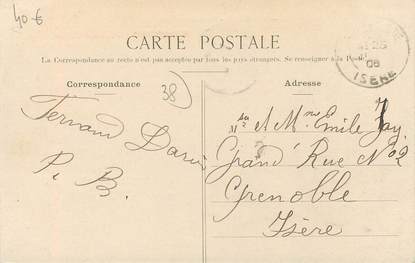 40 €
CARTE POSTALE
La Correspondance au recto n'est pas acceptée par tous les pays étrangers. Se renseigner à la Poste.
Correspondance
38
Fernand
P. B.
Adresse
Mr et Mme Emile Jay
Grand' Rue No 2
Grenoble
Isère
08
ISÈRE